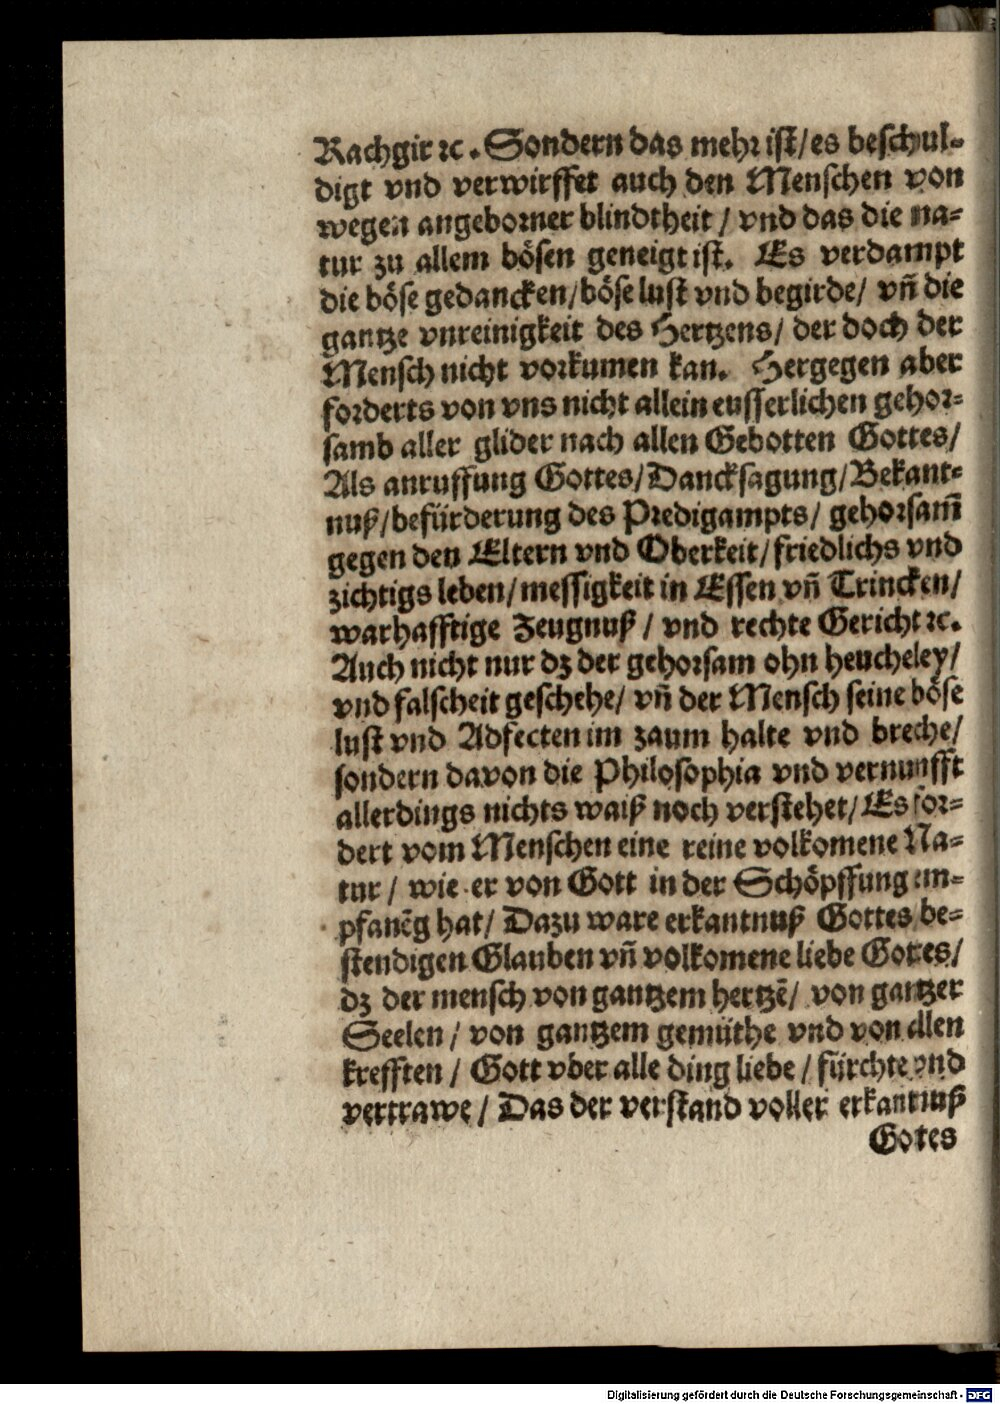 Rachgir ꝛc. Sondern das mehr ist/es beschul-
digt vnd verwirffet auch den Menschen von
wegen angeborner blindtheit / vnd das die na-
tur zu allem bösen geneigt ist. Es verdampt
die böse gedancken/böse lust vnd begirde/ vn̄ die
gantze vnreinigkeit des Hertzens/ der doch der
Mensch nicht vorkumen kan. Hergegen aber
forderts von vns nicht allein eusserlichen gehor-
samb aller glider nach allen Gebotten Gottes/
Als anruffung Gottes/Dancksagung/Bekant-
nuß/befürderung des Predigampts/ gehorsam̄
gegen den Eltern vnd Oberkeit/friedlichs vnd
zichtigs leben/messigkeit in Essen vn̄ Trincken/
warhafftige Zeugnuß / vnd rechte Gericht ꝛc.
Auch nicht nur dz der gehorsam ohn heucheley/
vnd falscheit geschehe/ vn̄ der Mensch seine böse
lust vnd Adfecten im zaum halte vnd breche/
sondern davon die Philosophia vnd vernunfft
allerdings nichts waiß noch verstehet/Es for-
dert vom Menschen eine reine volkomene Na-
tur / wie er von Gott in der Schöpffung em-
pfanēg hat/ Dazu ware erkantnuß Gottes be-
stendigen Glauben vn̄ volkomene liebe Gottes/
dz der mensch von gantzem hertzē/ von gantzer
Seelen / von gantzem gemüthe vnd von allen
krefften / Gott vber alle ding liebe / fürchte vnd
vertrawe / Das der verstand voller erkantnuß
Gotes
Digitalisierung gefördert durch die Deutsche Forschungsgemeinschaft - DFG